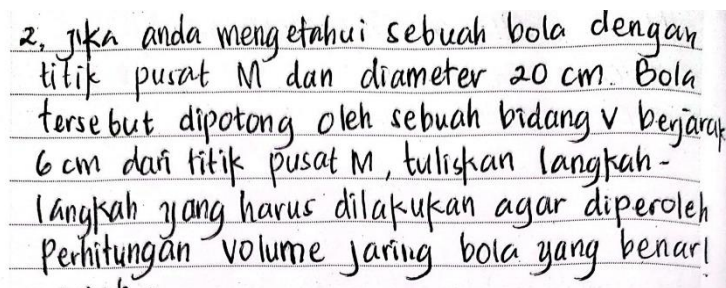 2. Jika anda mengetahui sebuah bola dengan
titik pusat M dan diameter 20 cm. Bola
tersebut dipotong oleh sebuah bidang v berjarak
6 cm dari titik pusat M, tuliskan langkah-
langkah yang harus dilakukan agar diperoleh
Perhitungan volume jaring bola yang benar!